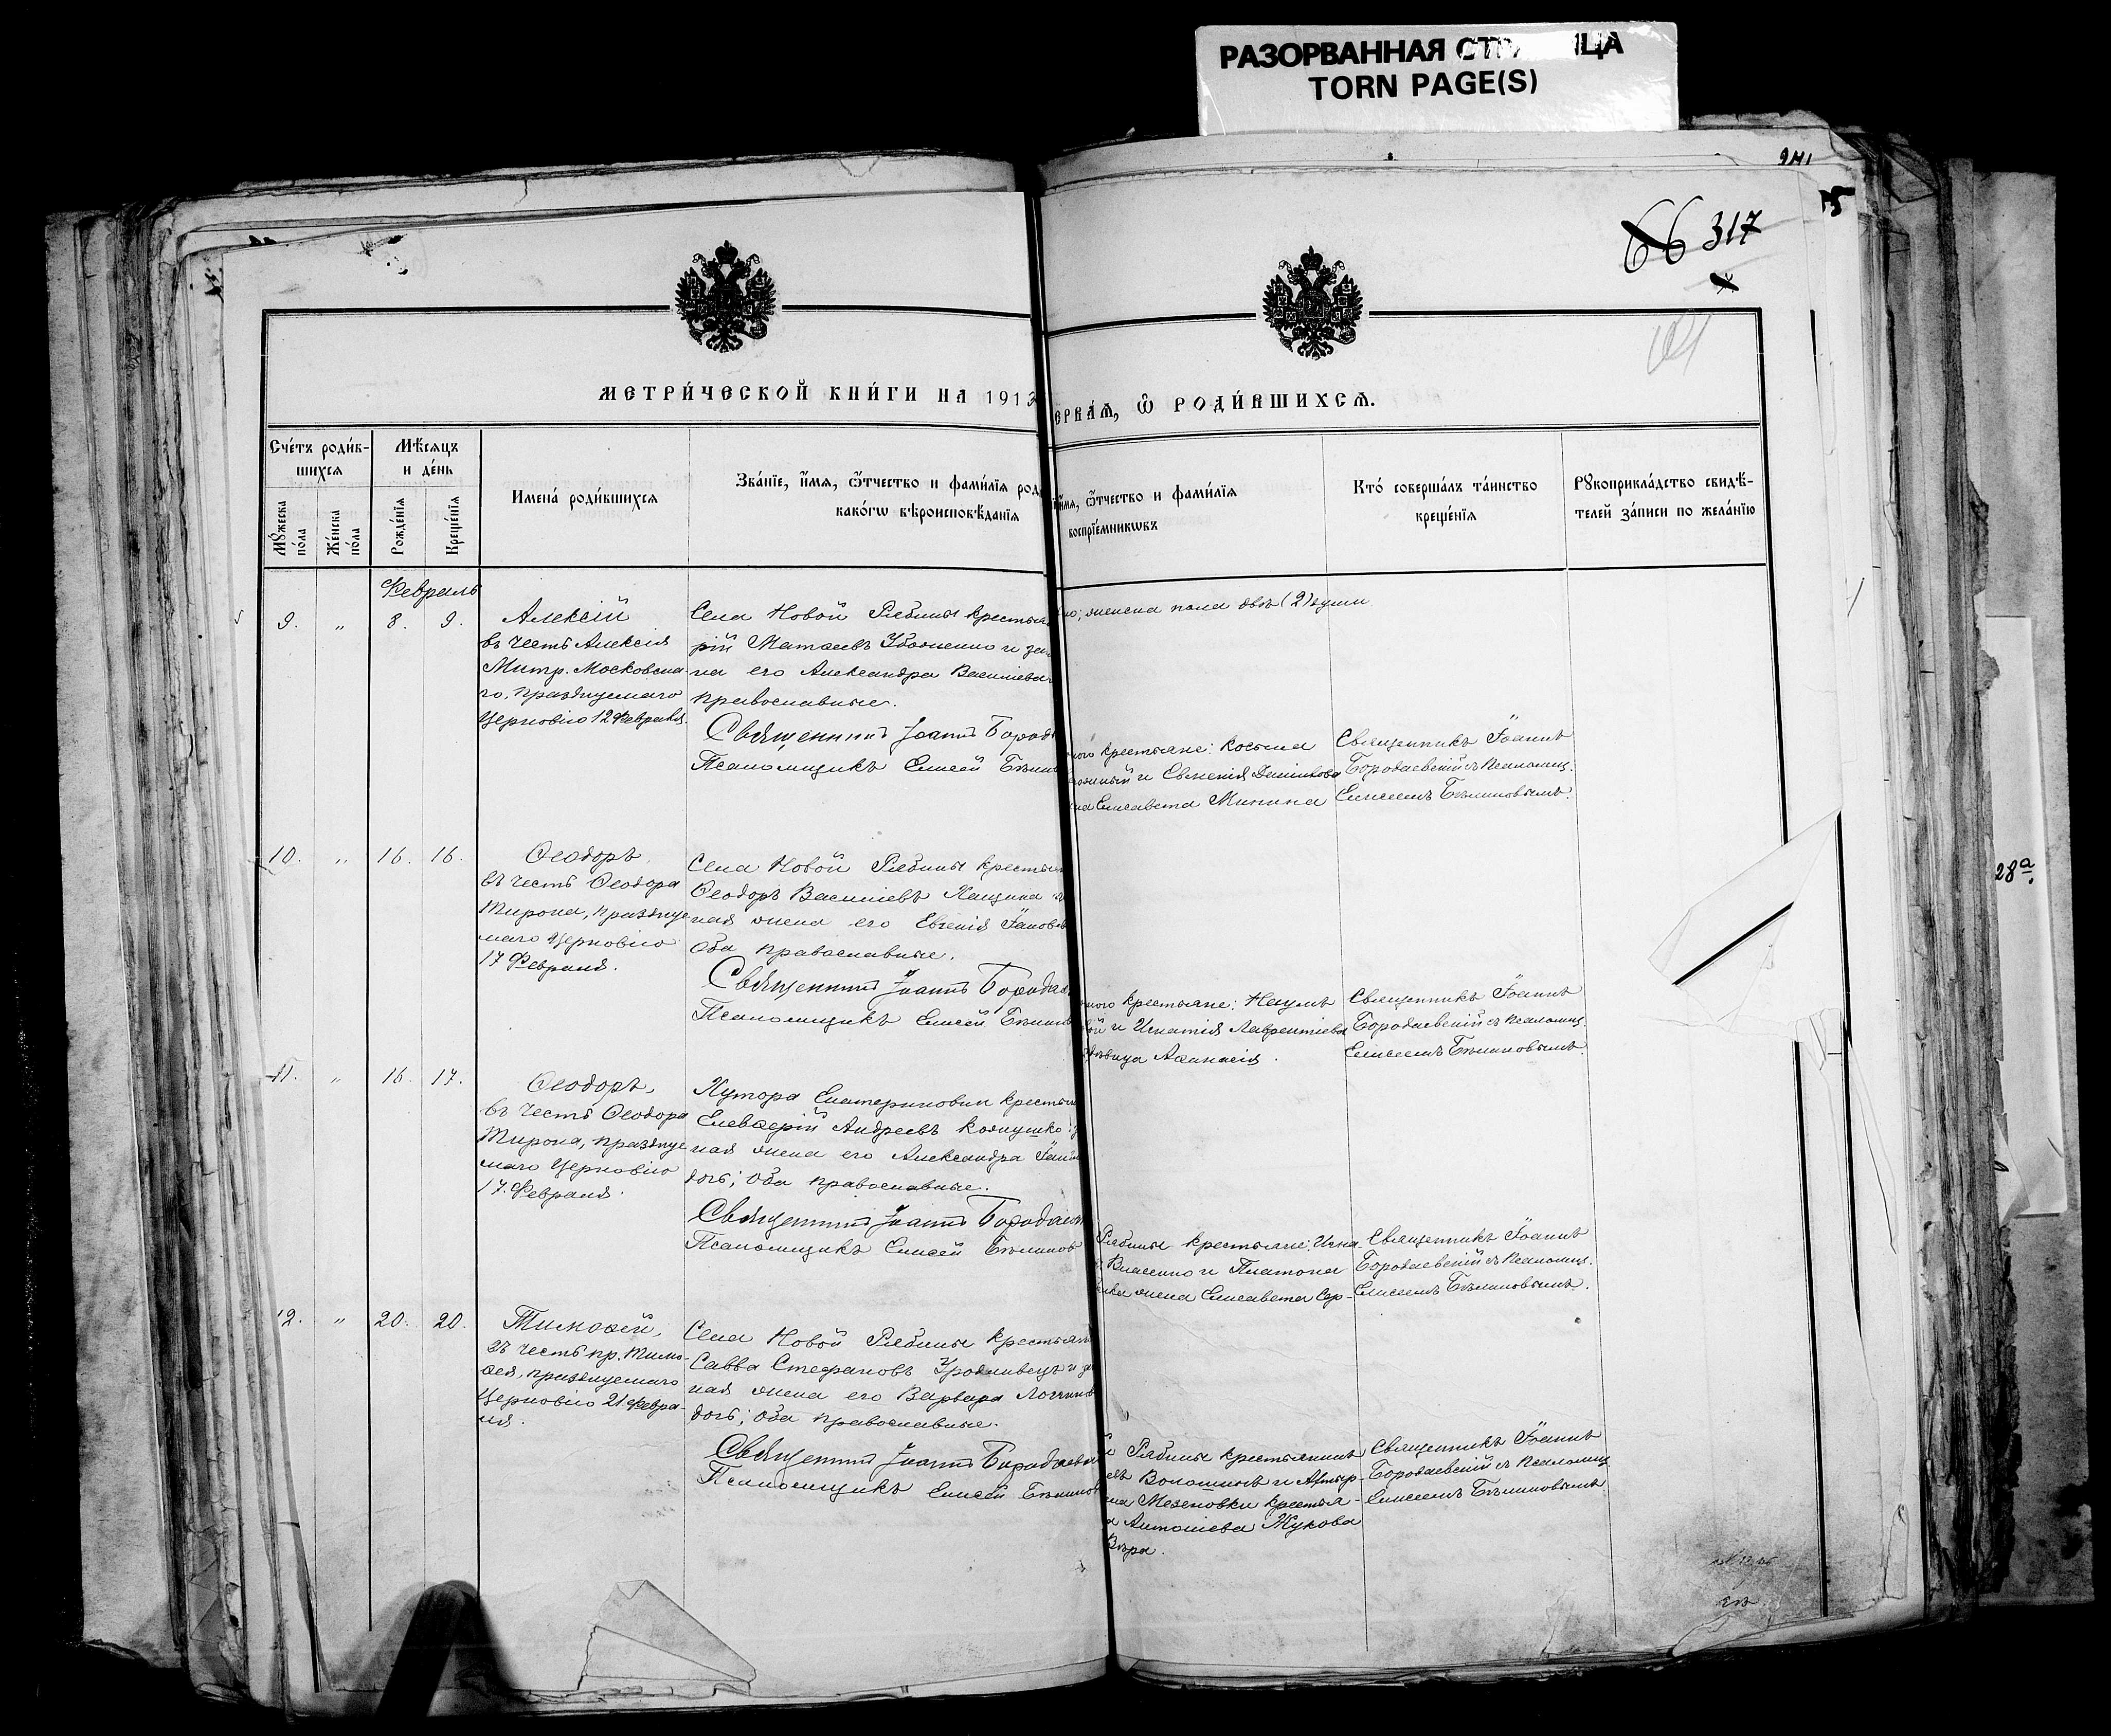 РАЗОРВАННАЯ СТР ИЦА
TORN PAGE(S)
66 317
МЕТРИ́ЧЕСКОЙ КНИ́ГИ НА 1913
ЕРВА́Я, Ѽ РОДИ́ВШИХСЯ.
Сче́тъ роди́в-
шихся
Мѣ́сяцъ
и де́нь
Мꙋ́жеска по́ла
Же́нска по́ла
Рожде́нїя
Креще́нїя
Имена́ роди́вшихся
Зва́нїе, и҆́мя, ѻ҆́тчество и фами́лїя род
како́гѡ вѣроисповѣ́данїя
и҆́мя, ѻ҆́тчество и фами́лїя
воспрїе́мникѡвъ
Кто́ соверша́лъ та́инство
креще́нїя
Рꙋкоприкла́дство свидѣ́-
телей за́писи по жела́нїю
Февраль
9. „ 8. 9.
Алексій
въ честь Алексія
Митр. Московска-
го, празднуемаго
Церковію 12 Февраля.
Села Новой Рябины крестья
рій Матѳеевъ и за
на его Александра Василіева
православные.
Священникъ Іоаннъ Бород
Псаломщикъ Елисей Бѣлин
женска пола двѣ (2) души
крестьяне: Косьма
и Евгенія Даниилова
Елисавета Минина
Священникъ Іоаннъ
Бородаевскій съ псаломщ.
Елисеемъ Бѣлиновымъ.
10. „ 16. 16.
Ѳеодоръ,
въ честь Ѳеодора
Тирона, празднуе
маго Церковію
17 Февраля.
Села Новой Рябины крестьян
Ѳеодоръ Василіевъ Хащина и
ная жена его Евгенія Іанов
Оба православные.
Священникъ Іоаннъ Бородае
Псаломщикъ Елисей Бѣлин
крестьяне: Наумъ
и Игнатія Лаврентіева
дѣвица Аѳанасія.
Священникъ Іоаннъ
Бородаевскій съ псаломщ.
Елисеемъ Бѣлиновымъ.
11. „ 16. 17.
Ѳеодоръ,
въ честь Ѳеодора
Тирона, празднуе
маго Церковію
17. Февраля.
Хутора Екатериновки крестьян
Елевѳерій Андреевъ
ная жена его Александра
вой; Оба православные.
Священникъ Іоаннъ Бородаев
Псаломщикъ Елисей Бѣлинов
Рябины крестьяне: Игна-
Власенко и Платона
жена Елисавета Сер-
Священникъ Іоаннъ
Бородаевскій съ псаломщ.
Елисеемъ Бѣлиновымъ.
12. „ 20. 20.
Тимоѳей,
въ честь пр. Тимо-
ѳея, празднуемаго
Церковію 21 Февра-
ля.
Села Новой Рябины крестьян
Савва Стефановъ и за
ная жена его Варвара Логгинов
вой; Оба православные.
Священникъ Іоаннъ Бородаевск
Псаломщикъ Елисей Бѣлинов
Рябины крестьянинъ
Волошинъ и
Мезеновки крестья-
Антоніева Жукова
Вѣра.
Священникъ Іоаннъ
Бородаевскій съ псаломщ.
Елисеемъ Бѣлиновымъ.
28а.